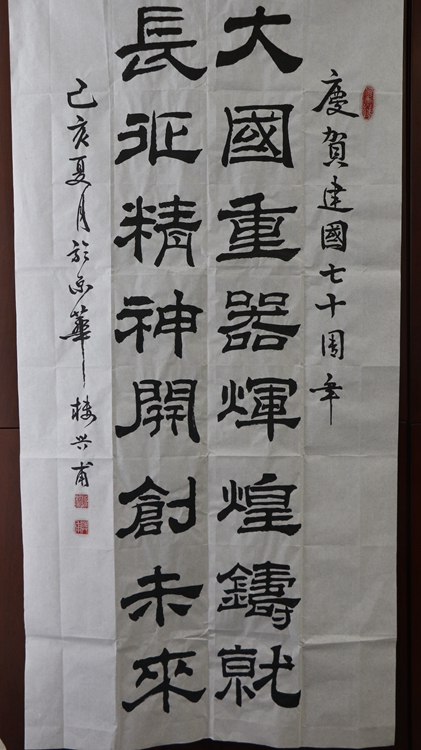 慶賀建國七十周年
大國重器輝煌鑄就
長征精神開創未來
己亥夏月於京華樓興甫